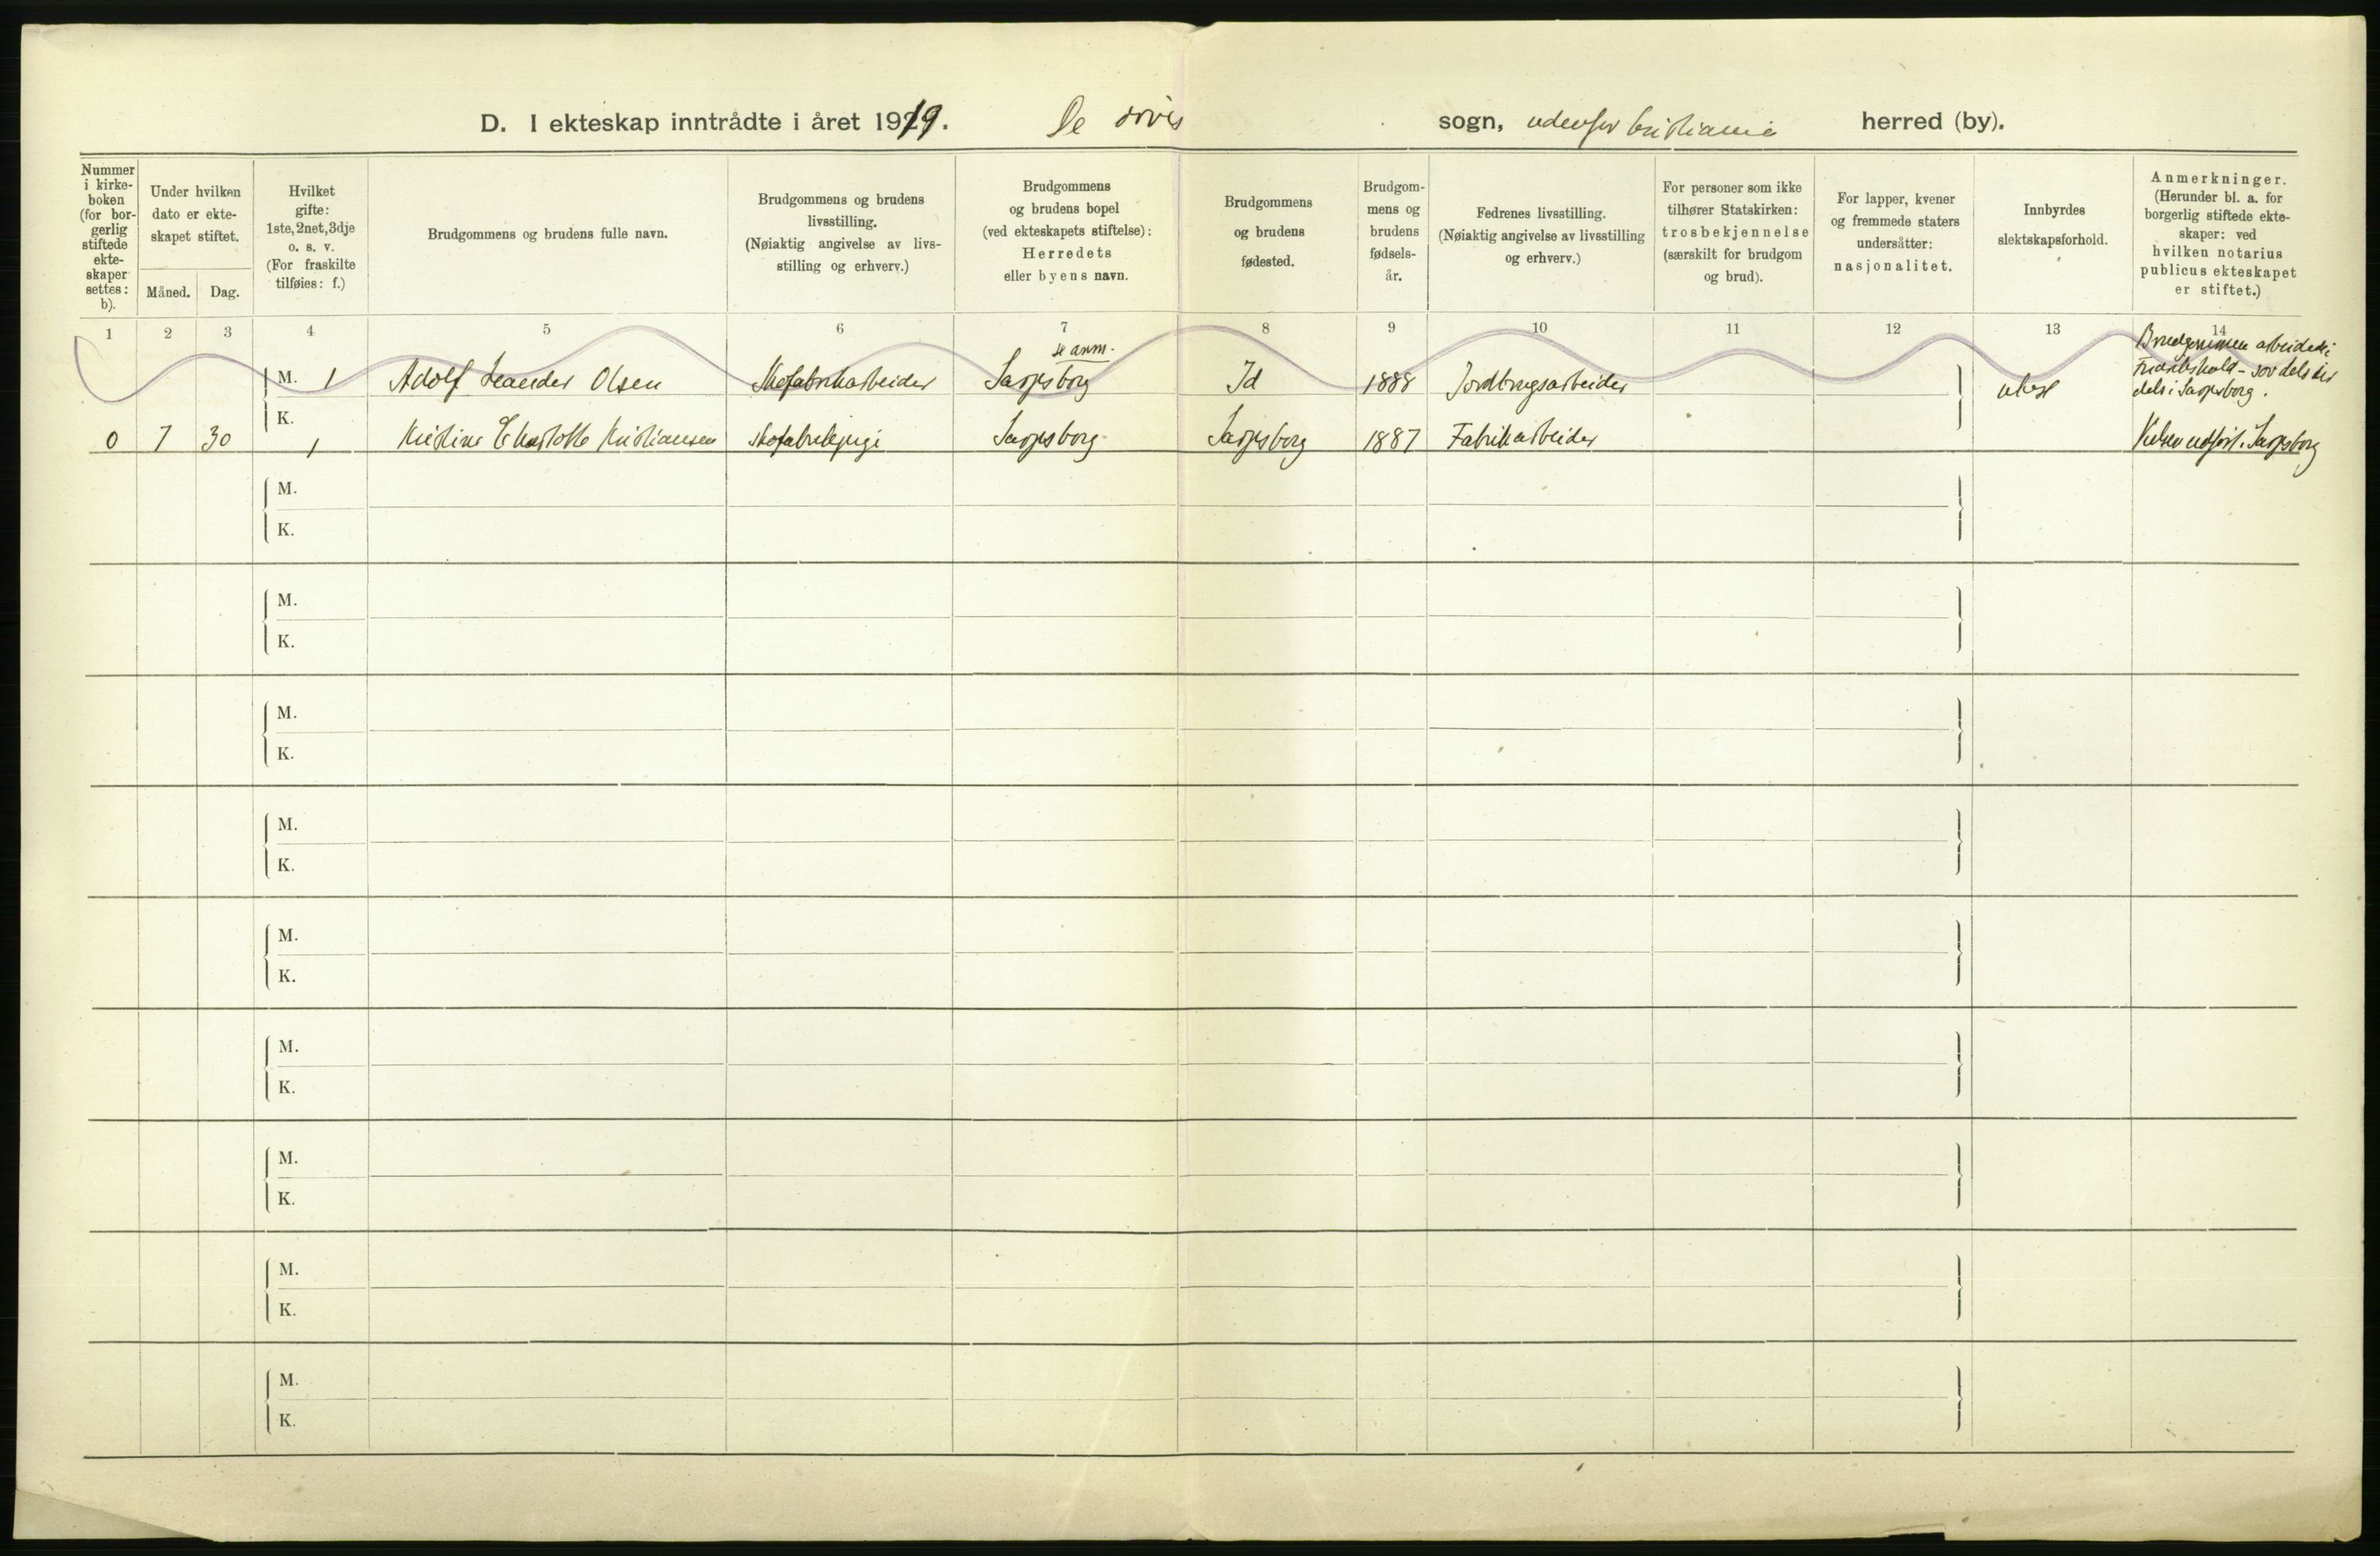 D. I ekteskap inntrådte i året 1919. De øvrige sogn, udenfor Kristiania herred (by).
Nummer
i kirke-
boken
(for bor-
gerlig
stiftede
ekte-
skaper
settes:
b).
Under hvilken
dato er ekte-
skapet stiftet.
Måned. Dag.
Hvilket
gifte:
1ste, 2net, 3dje
o. s. v.
(For fraskilte
tilføies: f.)
Brudgommens og brudens fulle navn.
Brudgommens og brudens
livsstilling.
(Nøiaktig angivelse av livs-
stilling og erhverv.)
Brudgommens
og brudens bopel
(ved ekteskapets stiftelse):
Herredets
eller byens navn.
Brudgommens
og brudens
fødested.
Brudgom-
mens og
brudens
fødsels-
år.
Fedrenes livsstilling.
(Nøiaktig angivelse av livsstilling
og erhverv.)
For personer som ikke
tilhører Statskirken:
trosbekjennelse
(særskilt for brudgom
og brud).
For lapper, kvener
og fremmede staters
undersåtter:
nasjonalitet.
Innbyrdes
slektskapsforhold.
Anmerkninger.
(Herunder bl. a. for
borgerlig stiftede ekte-
skaper: ved
hvilken notarius
publicus ekteskapet
er stiftet.)
1 2 3 4 5 6 7 8 9 10 11 12 13 14
se anm.
M. 1 Adolf Leander Olsen Skofabrikarbeider Sarpsborg Id 1888 Jordbrugsarbeider
Brudgommen arbeidet i
Fredrikshald - sov dels der
dels i Sarpsborg.
K.
0 7 30 1 Kristine Charlotte Kristiansen Skofabrikpige Sarpsborg Sarpsborg 1887 Fabrikarbeider
Sarpsborg
M.
K.
M.
K.
M.
K.
M.
K.
M.
K.
M.
K.
M.
K.
M.
K.
M.
K.